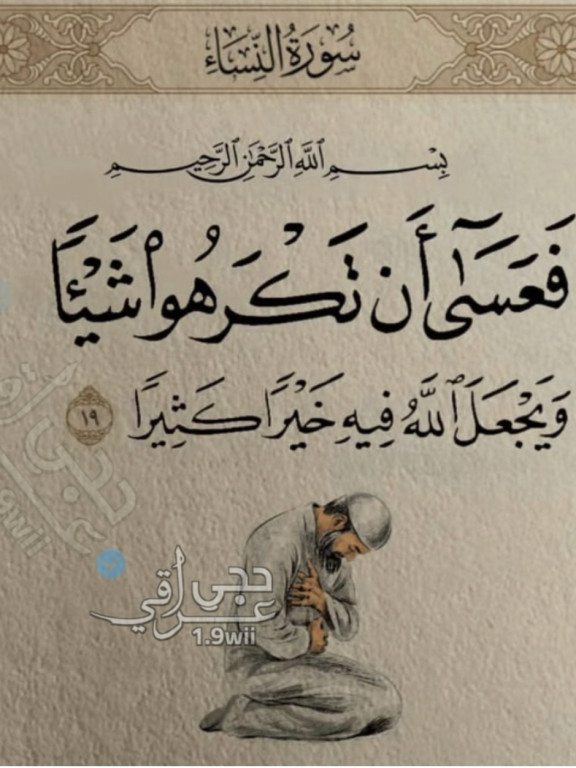 سُورَةُ النِّسَاءِ
بِسْمِ ٱللَّهِ ٱلرَّحْمَٰنِ ٱلرَّحِيمِ
فَعَسَىٰٓ أَن تَكْرَهُوا۟ شَيْـًٔا
وَيَجْعَلَ ٱللَّهُ فِيهِ خَيْرًا كَثِيرًا ١٩
حچي
عراقي
1.9wii